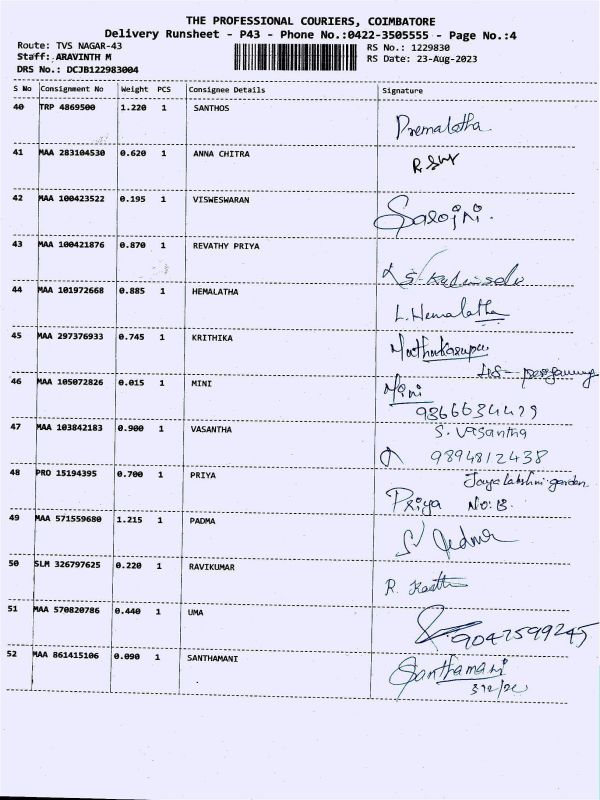 THE PROFESSIONAL COURIERS, COIMBATORE
Delivery Runsheet - P43 - Phone No.:0422-3505555 - Page No.:4
Route: TVS NAGAR-43 RS No.: 1229830
Staff: ARAVINTH M RS Date: 23-Aug-2023
DRS No.: DCJB122983004
S No Consignment No Weight PCS Consignee Details Signature
40 TRP 4869500 1.220 1 SANTHOS
Premalatha
41 MAA 283104530 0.620 1 ANNA CHITRA
42 MAA 100423522 0.195 1 VISWESWARAN
Sarojni.
43 MAA 100421876 0.870 1 REVATHY PRIYA
44 MAA 101972668 0.885 1 HEMALATHA
L. Hemalatha
45 MAA 297376933 0.745 1 KRITHIKA
46 MAA 105072826 0.015 1 MINI
Mini
9366634479
47 MAA 103842183 0.900 1 VASANTHA S. Vasantha
9894812438
48 PRO 15194395 0.700 1 PRIYA Jayalakshmi garden
Priya No: B.
49 MAA 571559680 1.215 1 PADMA
50 SLM 326797625 0.220 1 RAVIKUMAR
R.
51 MAA 570820786 0.440 1 UMA
9047599245
52 MAA 861415106 0.090 1 SANTHAMANI
Santhamani